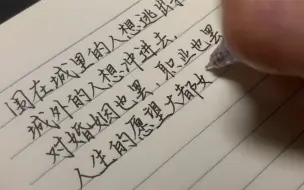 围在城里的人想逃出来
城外的人想冲进去,
对婚姻也罢,职业也罢
人生的愿望大都如